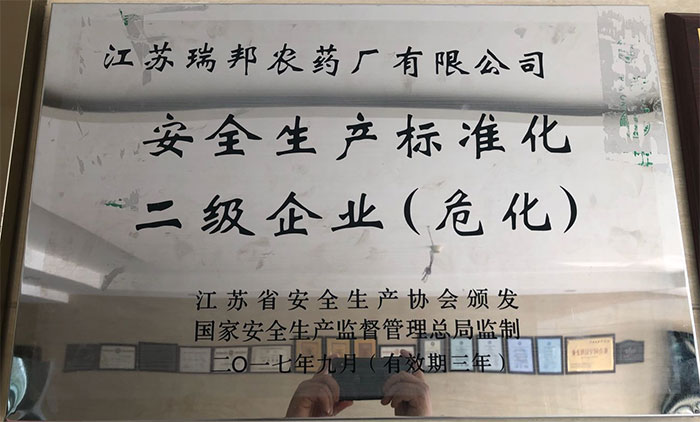 江苏瑞邦农药厂有限公司
安全生产标准化
二级企业(危化)
江苏省安全生产协会颁发
国家安全生产监督管理总局监制
二〇一七年九月(有效期三年)